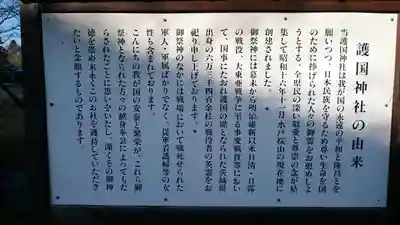 護国神社の由来
当護国神社は我が国の永遠の平和と隆昌とを
願いつつ、日本民族を守るため尊い生命を国
のために捧げられた人々の御霊をお慰めしよ
うとする、全県民の深い敬愛と尊崇の念が結
集して昭和十六年十一月水戸桜山の現在地に
創建されました。
御祭神には幕末から明治維新以来日清・日露
の戦役、大東亜戦争に至る事変戦役等におい
て、国事にたおれ護国の礎となられた茨城県
出身の六万三千四百余柱の戦役者の英霊をお
祀り申し上げております。
御祭神のなかには戦場において戦死せられた
軍人、軍属ばかりでなく、従軍看護婦等の女
性も含まれております。
こんにちの我が国の安泰と繁栄が、これら御
祭神となられた方々の献身奉公によってもた
らされたことに思いをいたし、深くその御神
徳を崇め末永くこのお社を護持していただき
たいと念願するものであります。